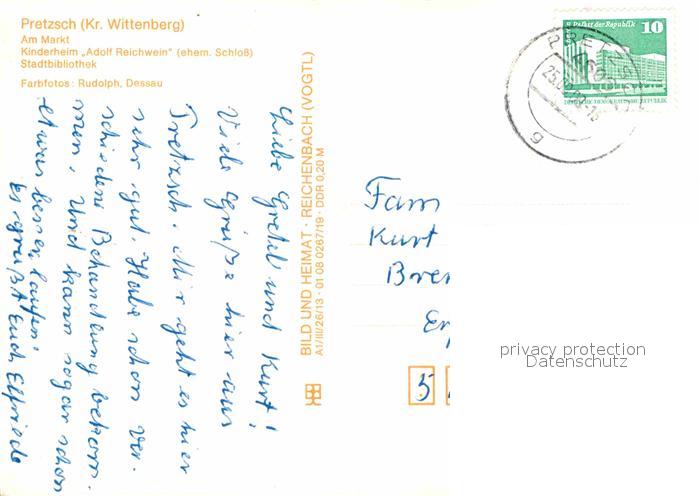 Pretzsch (Kr. Wittenberg)
Am Markt
Kinderheim „Adolf Reichwein" (ehem. Schloß)
Stadtbibliothek
Farbfotos: Rudolph, Dessau
Liebe Gretel und Kurt!
Viele Grüße hier aus
Pretzsch. Mir geht es hier
sehr gut. Habe schon ver-
schiedene Behandlung bekom-
men. Und kann sogar schon
etwas besser laufen.
Es grüßt Euch Elfriede
BILD UND HEIMAT · REICHENBACH (VOGTL)
A1/III/26/13 · 01 08 0267/19 · DDR 0,20 M
P. Palast der Republik 10
DEUTSCHE DEMOKRATISCHE REPUBLIK
PRETZSCH
g
Fam
Kurt
Brem
Erf
5
privacy protection
Datenschutz